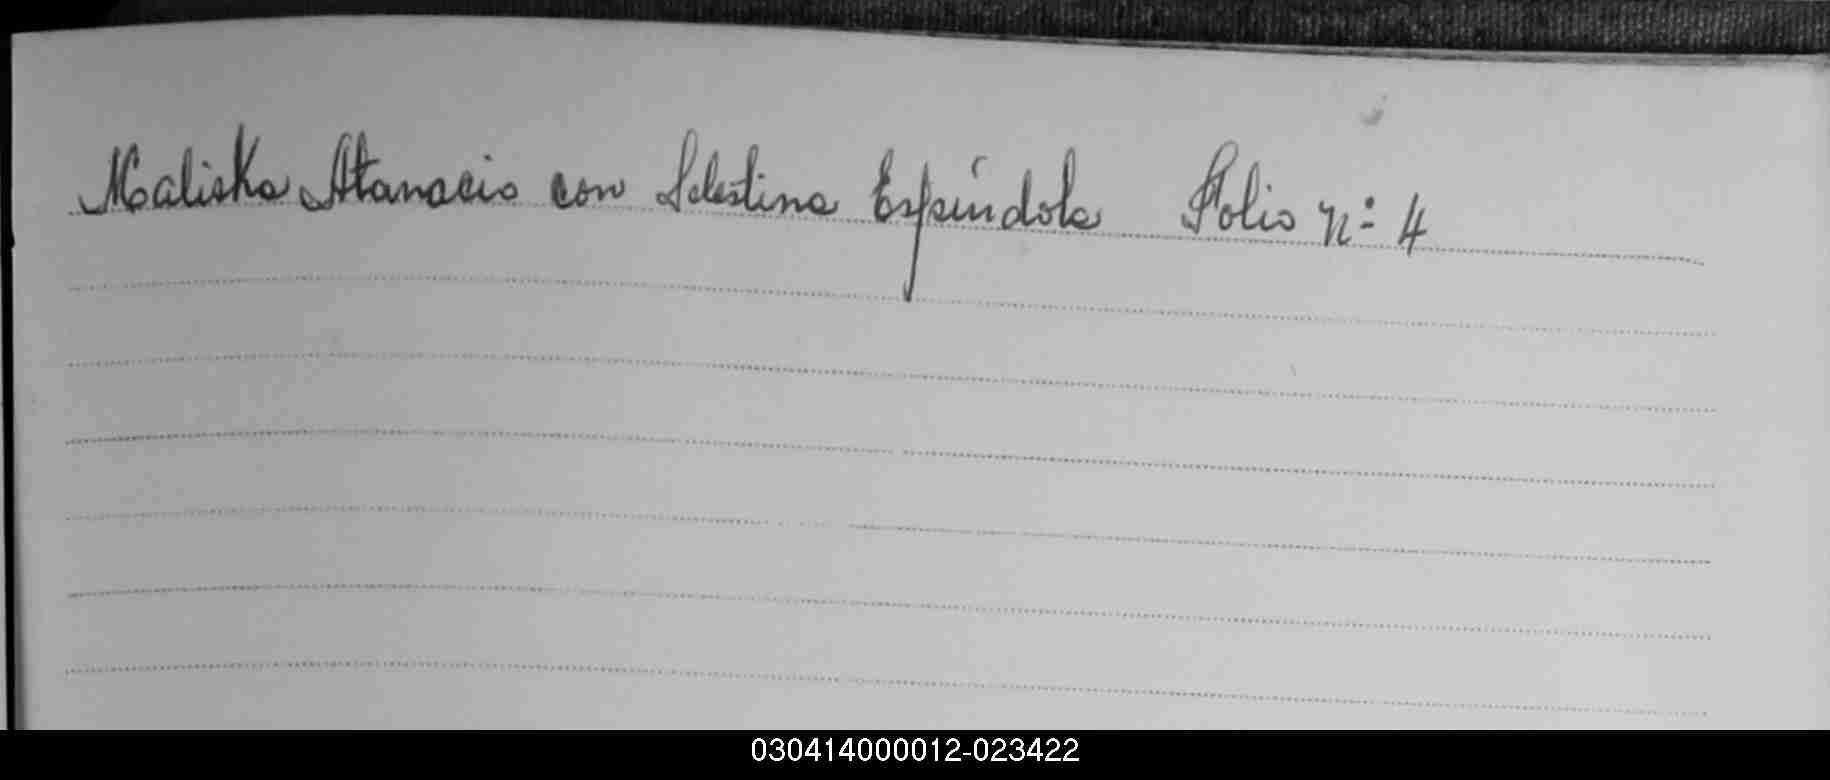 Maliska Atanacio con Selestina Espíndola Folio nº 4
030414000012-023422